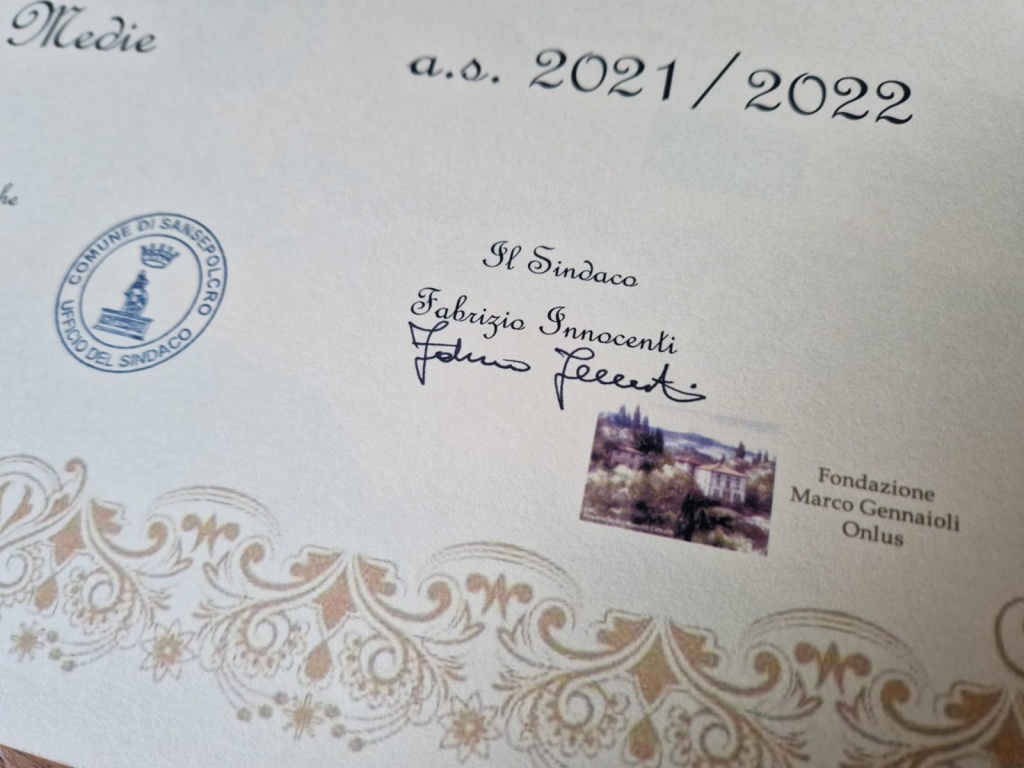 Medie
a.s. 2021/2022
he
COMUNE DI SANSEPOLCRO
UFFICIO DEL SINDACO
Il Sindaco
Fabrizio Innocenti
Fabrizio Innocenti
Fondazione
Marco Gennaioli
Onlus